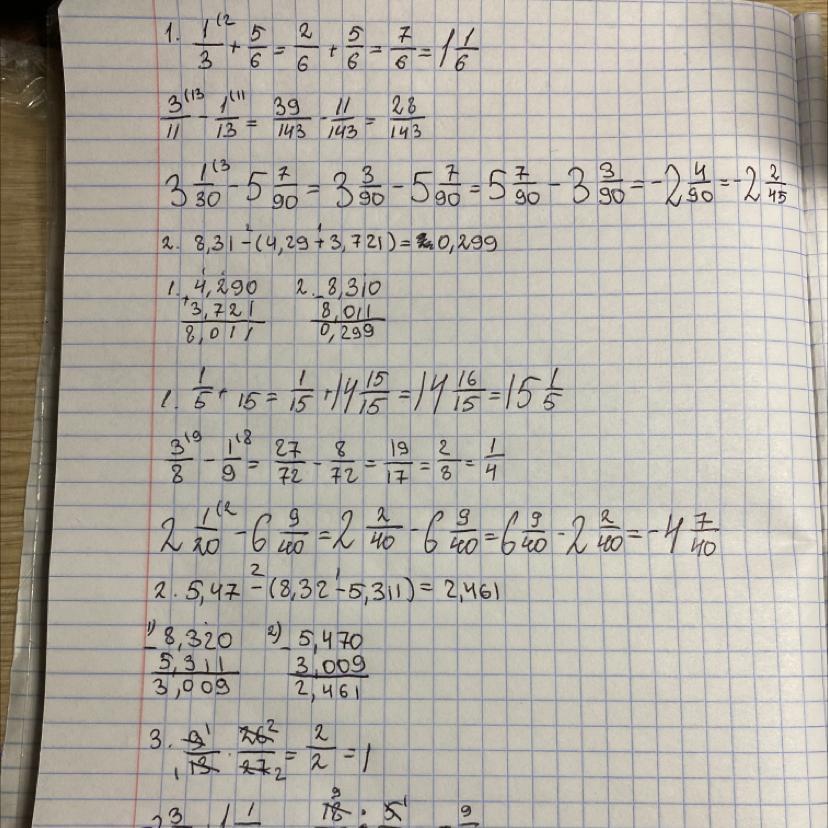 1. 1(2/3 + 5/6 = 2/6 + 5/6 = 7/6 = 1 1/6
3(13/11 - 1(11/13 = 39/143 - 11/143 = 28/143
3 1(3/30 - 5 7/90 = 3 3/90 - 5 7/90 = 5 7/90 - 3 3/90 = -2 4/90 = -2 2/45
2. 8,31 -² (4,29 +¹ 3,721) = 0,299
1. 4,290 2. 8,310
+ 3,721 - 8,011
8,011 0,299
1. 1/5 + 15 = 1/15 + 14 15/15 = 14 16/15 = 15 1/5
3(9/8 - 1(8/9 = 27/72 - 8/72 = 19/17 = 2/8 = 1/4
2 1(2/20 - 6 9/40 = 2 2/40 - 6 9/40 = 6 9/40 - 2 2/40 = -4 7/40
2. 5,47 -² (8,32 -¹ 5,311) = 2,461
1) - 8,320 2) - 5,470
5,311 3,009
3,009 2,461
3. 9¹/₁13 · 26²/27₂ = 2/2 = 1
3 1 1 9 18 : 5¹ 9